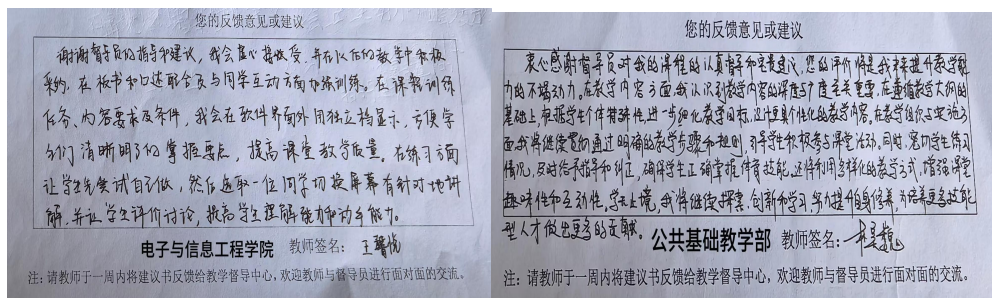 您的反馈意见或建议
谢谢督导员的指导和建议,我会虚心接受,并在以后的教学中积极
采纳。在板书和口述配合及与同学互动方面加强训练。在课程训练
任务、内容要求及条件,我会在软件界面外用独立档显示,方便学
生们清晰明了的掌握要点,提高课堂教学质量。在练习方面
让学生先尝试自己做,然后选取一位同学切换屏幕有针对地讲
解,并让学生评价讨论,提高学生理解能力和动手能力。
电子与信息工程学院 教师签名:
注:请教师于一周内将建议书反馈给教学督导中心,欢迎教师与督导员进行面对面的交流。
您的反馈意见或建议
衷心感谢督导员对我的课程的认真指导和宝贵建议,您的评价将是我未来提升教学能
力的不竭动力。在教学内容方面,我认识到教学内容的深度与广度至关重要,在遵循教学大纲的
基础上,根据学生个体特殊性,进一步细化教学目标,设计更具个性化的教学内容。在教学组织与实施方
面,我将继续贯彻通过明确的教学步骤和规则,引导学生积极参与课堂活动。同时,密切学生练习
情况,及时给予指导和纠正,确保学生正确掌握体育技能。还将利用多样化的教学方式,增强课堂
趣味性和互动性,学无止境,我将继续探索、创新和学习,努力提升自身修养,为培养更多技能
型人才做出更多的贡献。
公共基础教学部 教师签名:
注:请教师于一周内将建议书反馈给教学督导中心,欢迎教师与督导员进行面对面的交流。